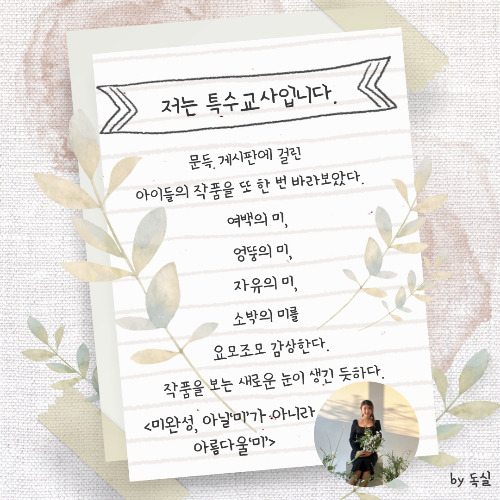 저는 특수교사입니다.
문득, 게시판에 걸린
아이들의 작품을 또 한 번 바라보았다.
여백의 미,
엉뚱의 미,
자유의 미,
소박의 미를
요모조모 감상한다.
작품을 보는 새로운 눈이 생긴 듯하다.
<미완성, 아닐'미'가 아니라
아름다울'미'>
by 독실